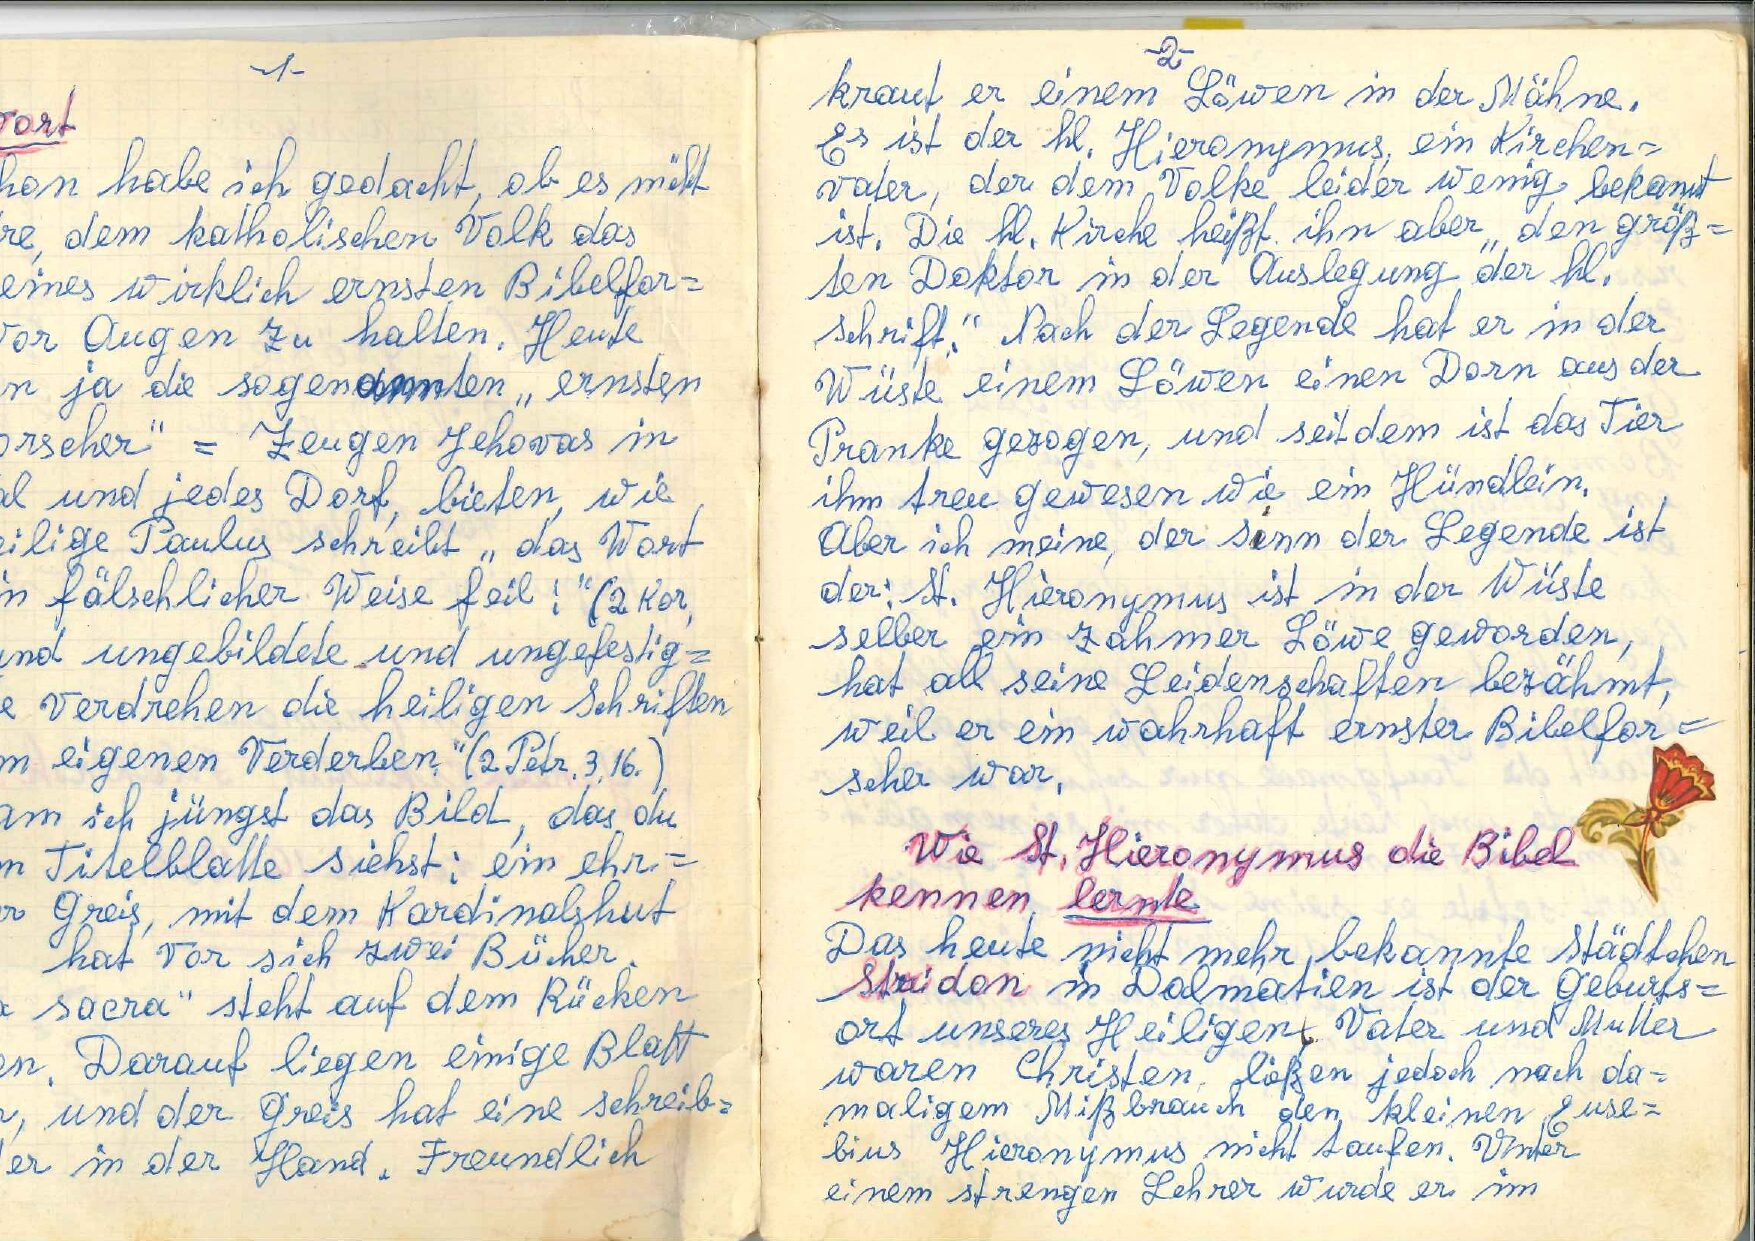 -1-
ort
hon habe ich gedacht, ob es nicht
re, dem katholischen Volk das
eines wirklich ernsten Bibelfor=
vor Augen zu halten. Heute
n ja die sogenannten „ernsten
orscher" = Zeugen Jehovas in
al und jedes Dorf, bieten, wie
eilige Paulus schreibt „das Wort
in fälschlicher Weise feil!" (2 Kor,
und ungebildete und ungefestig=
e verdrehen die heiligen Schriften
m eigenen Verderben." (2 Petr. 3, 16.)
am ich jüngst das Bild, das du
m Titelblatte siehst: ein ehr=
r Greis, mit dem Kardinalshut
hat vor sich zwei Bücher.
a sacra" steht auf dem Rücken
en. Darauf liegen einige Blatt
n, und der Greis hat eine Schreib=
er in der Hand. Freundlich
-2-
kraut er einem Löwen in der Mähne.
Es ist der hl. Hieronymus, ein Kirchen=
vater, der dem Volke leider wenig bekannt
ist. Die hl. Kirche heißt ihn aber „den größ=
ten Doktor in der Auslegung der hl.
Schrift." Nach der Legende hat er in der
Wüste einem Löwen einen Dorn aus der
Pranke gezogen, und seitdem ist das Tier
ihm treu gewesen wie ein Hündlein.
Aber ich meine, der Sinn der Legende ist
der: St. Hieronymus ist in der Wüste
selber ein zahmer Löwe geworden,
hat all seine Leidenschaften bezähmt,
weil er ein wahrhaft ernster Bibelfor=
scher war.
Wie St. Hieronymus die Bibel
kennen lernte
Das heute nicht mehr bekannte Städtchen
Stridon in Dalmatien ist der Geburts=
ort unseres Heiligen. Vater und Mutter
waren Christen, ließen jedoch nach da=
maligem Mißbrauch den kleinen Euse=
bius Hieronymus nicht taufen. Unter
einem strengen Lehrer wurde er im